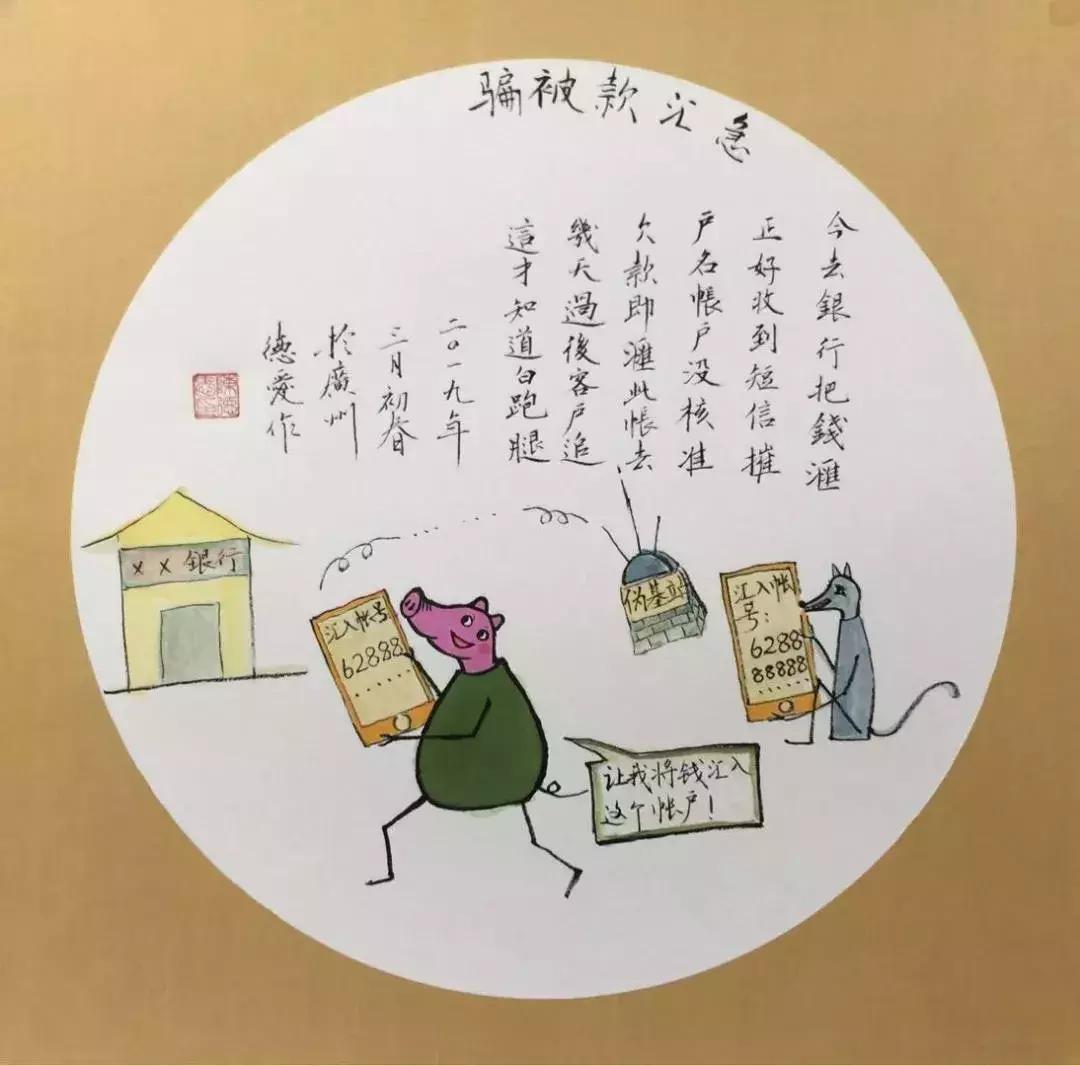 急汇款被骗
今去銀行把錢滙
正好收到短信摧
户名帳户没核准
欠款即滙此帳去
幾天過後客户追
這才知道白跑腿
二〇一九年
三月初春
於廣州
德爱作
××銀行
汇入帐号
62888
......
伪基站
汇入帐
号：
6288
88888
......
让我将钱汇入
这个帐户！